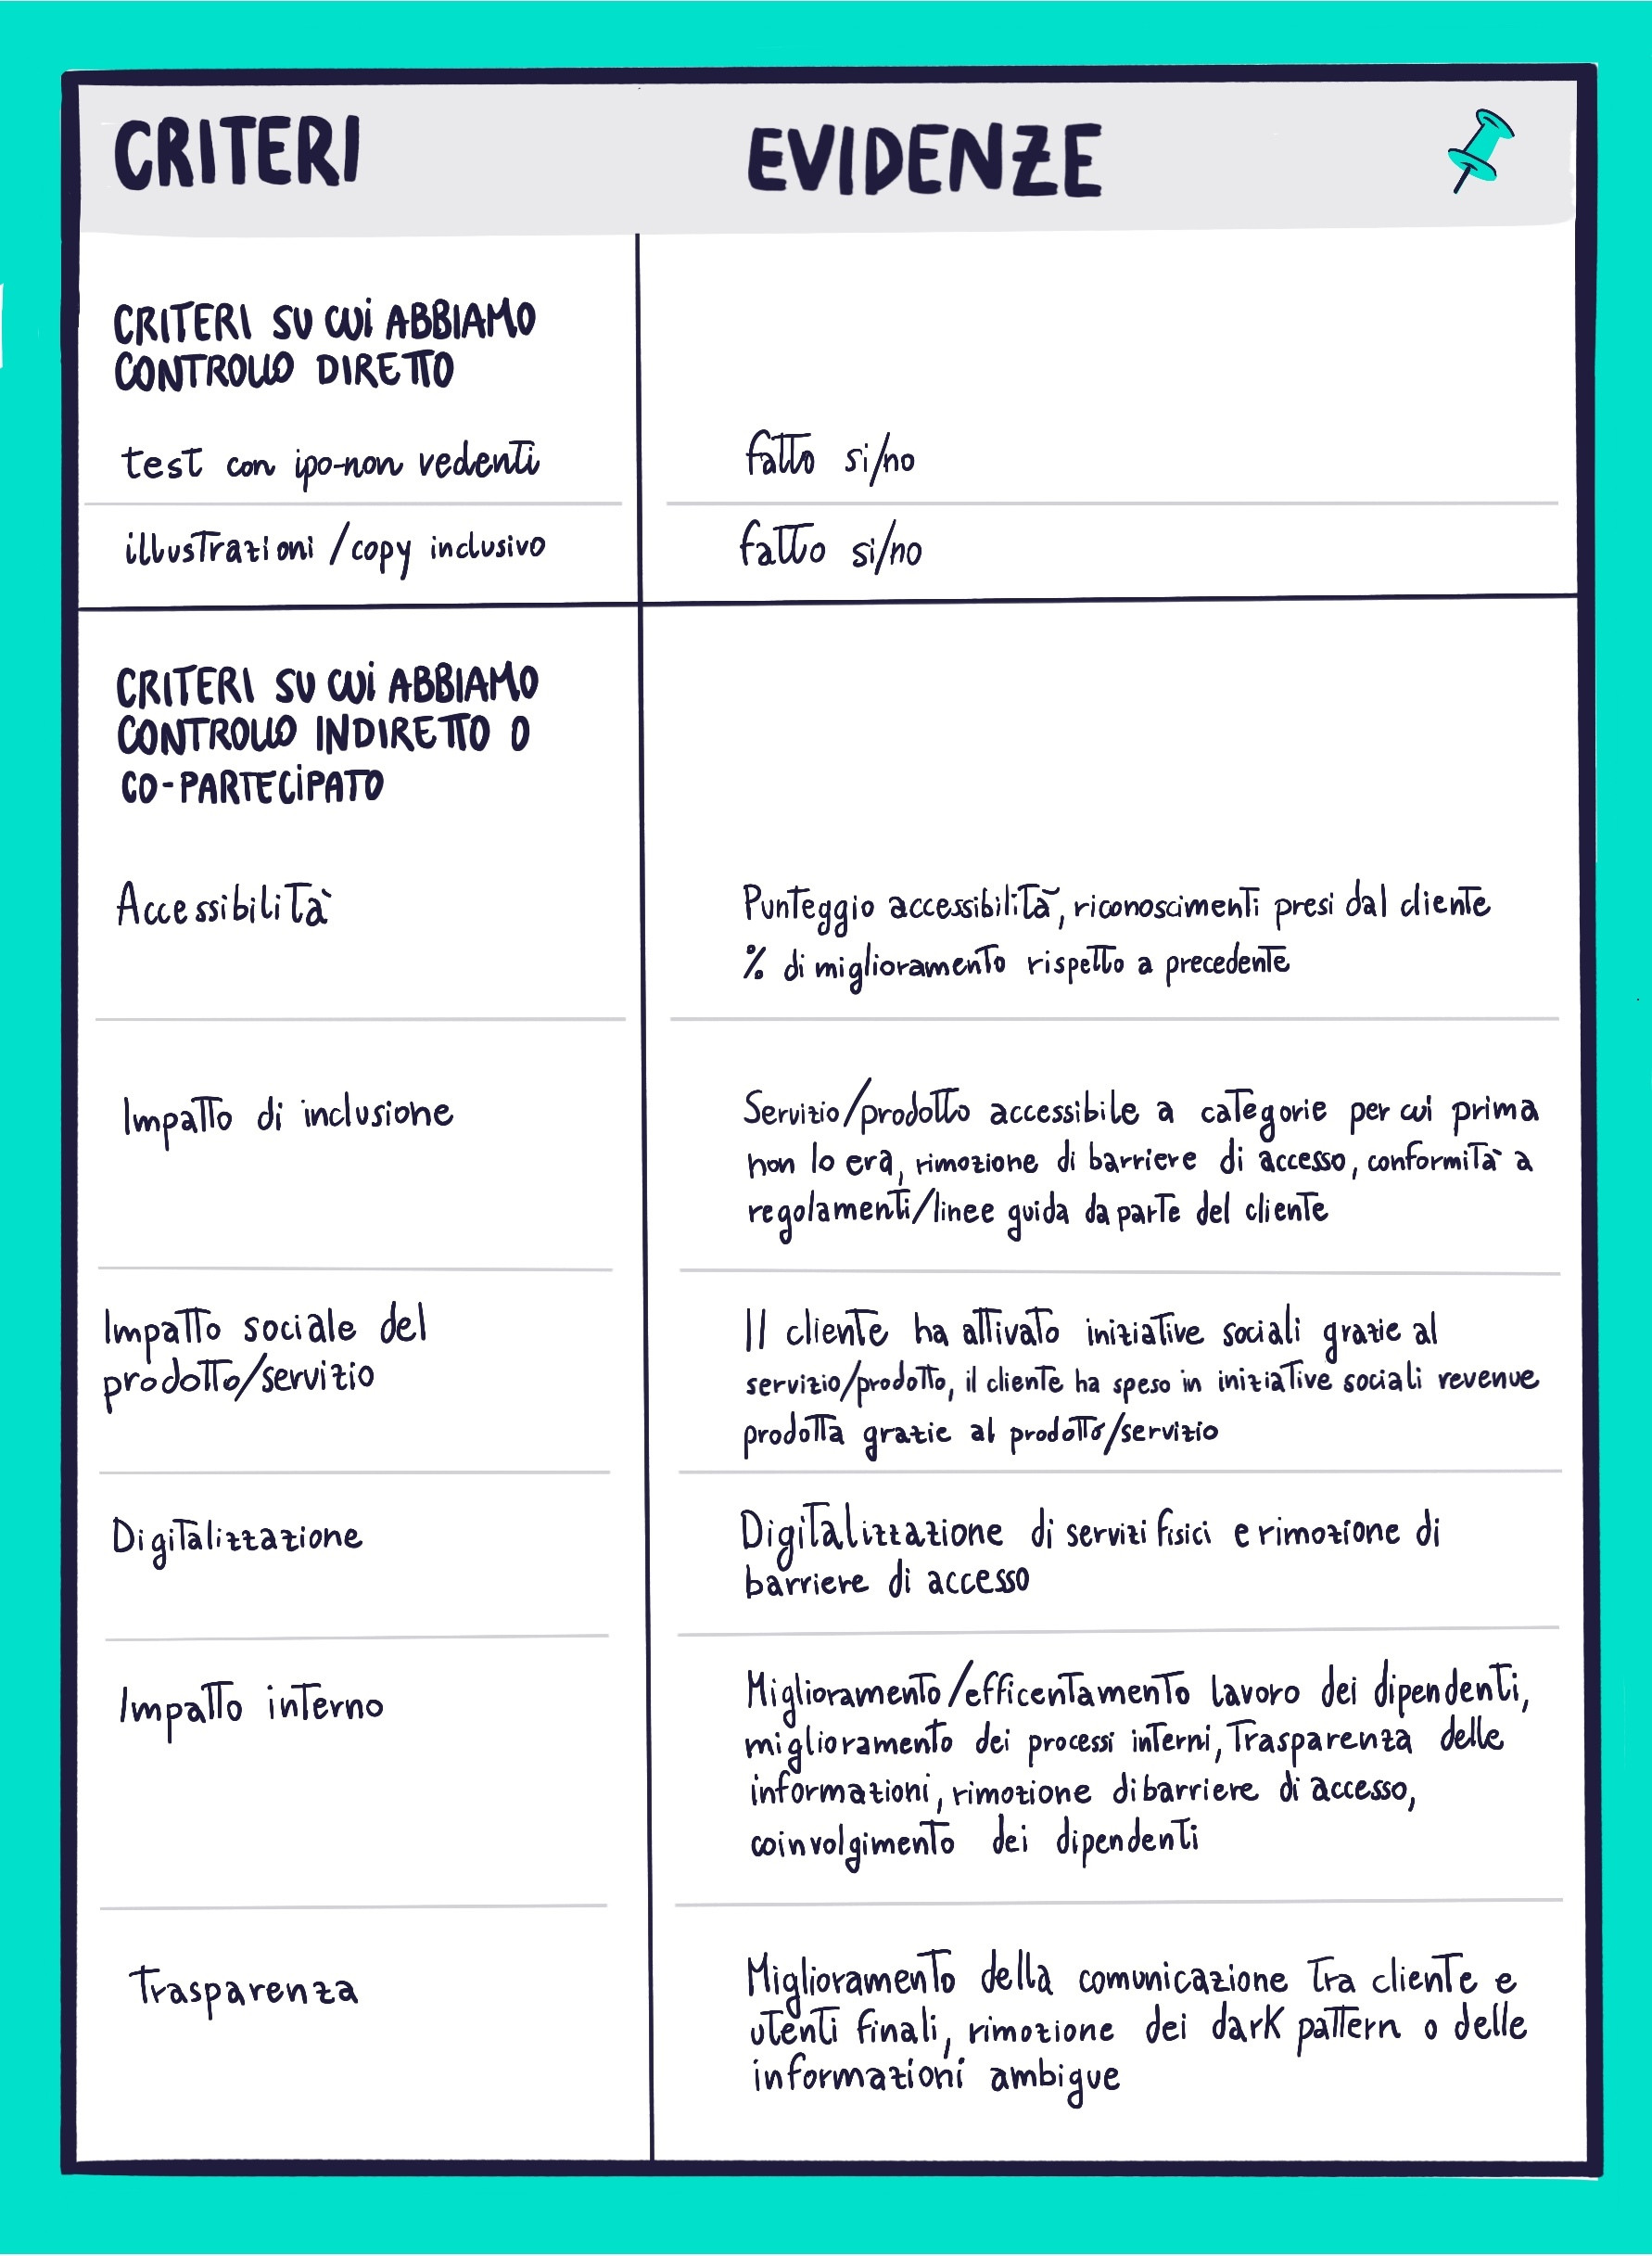 CRITERI
EVIDENZE
CRITERI SU CUI ABBIAMO
CONTROLLO DIRETTO
test con ipo-non vedenti
fatto si/no
illustrazioni /copy inclusivo
fatto si/no
CRITERI SU CUI ABBIAMO
CONTROLLO INDIRETTO O
CO-PARTECIPATO
Accessibilità
Punteggio accessibilità, riconoscimenti presi dal cliente
% di miglioramento rispetto a precedente
Impatto di inclusione
Servizio/prodotto accessibile a categorie per cui prima
non lo era, rimozione di barriere di accesso, conformità a
regolamenti/linee guida da parte del cliente
Impatto sociale del
prodotto/servizio
Il cliente ha attivato iniziative sociali grazie al
servizio/prodotto, il cliente ha speso in iniziative sociali revenue
prodotta grazie al prodotto/servizio
Digitalizzazione
Digitalizzazione di servizi fisici e rimozione di
barriere di accesso
Impatto interno
Miglioramento/efficentamento lavoro dei dipendenti,
miglioramento dei processi interni, Trasparenza delle
informazioni, rimozione di barriere di accesso,
coinvolgimento dei dipendenti
Trasparenza
Miglioramento della comunicazione tra cliente e
utenti finali, rimozione dei dark pattern o delle
informazioni ambigue